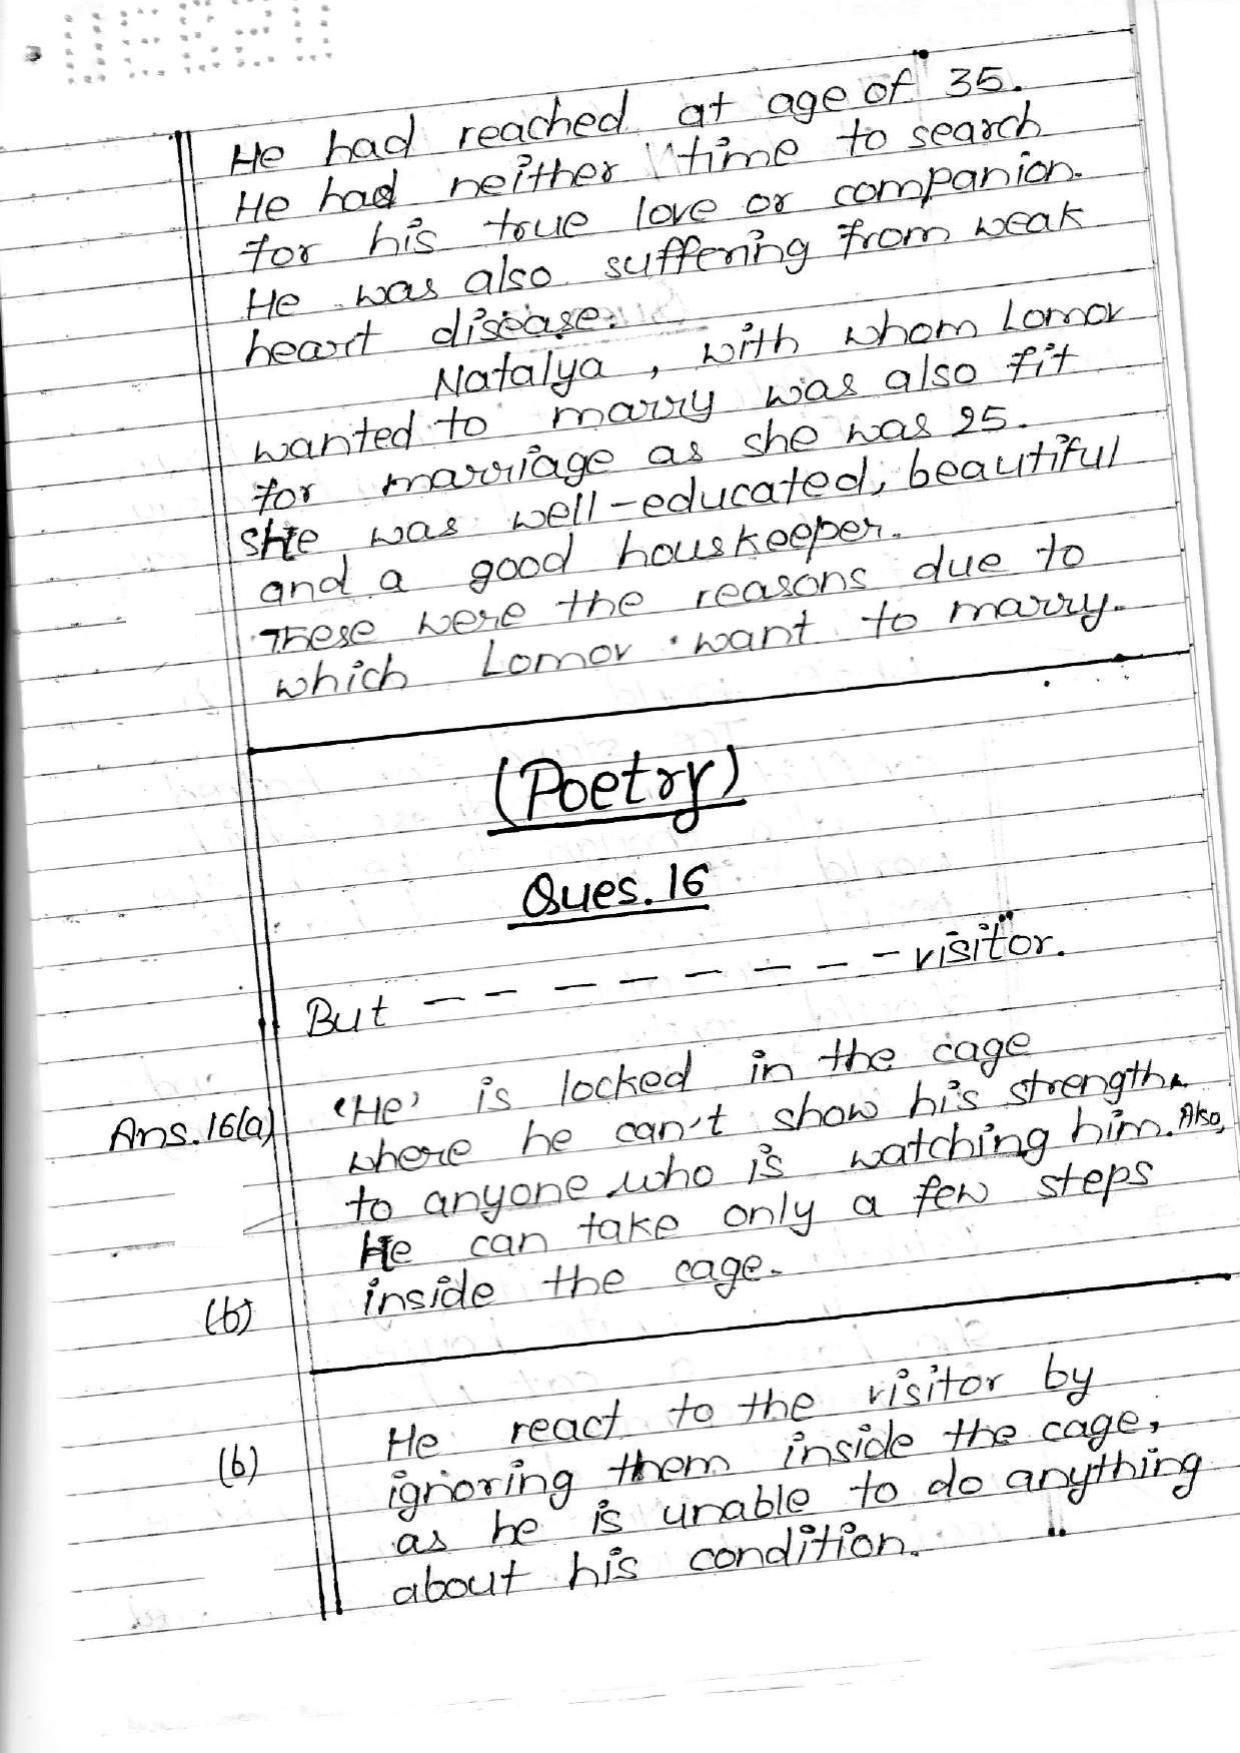 He had reached at age of 35.
He had neither time to search
for his true love or companion.
He was also suffering from weak
heart disease.
Natalya, with whom Lomov
wanted to marry was also fit
for marriage as she was 25.
She was well-educated, beautiful
and a good houskeeper.
These were the reasons due to
which Lomov want to marry.
(Poetry)
Ques. 16
But - - - - - - - - visitor.
Ans. 16(a) 'He' is locked in the cage
where he can't show his strength
to anyone who is watching him. Also,
He can take only a few steps
(b) inside the cage.
(b) He react to the visitor by
ignoring them inside the cage,
as he is unable to do anything
about his condition.